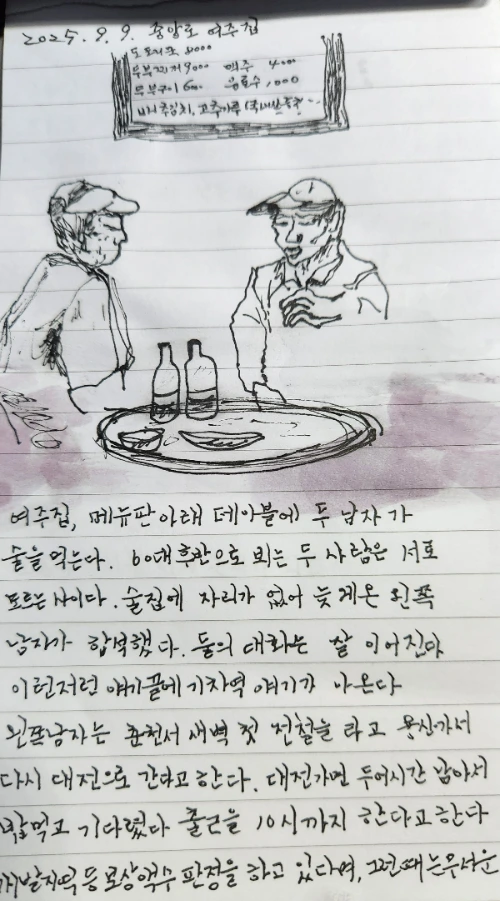 2025. 9. 9. 중앙로 여주집
도토리묵 8000
두부찌개 9000 맥주 4000
두부구이 6000 음료수 ,000
배추김치, 고추가루 (국내산
여주집, 메뉴판 아래 테이블에 두 남자가
술을 먹는다. 60대후반으로 뵈는 두 사람은 서로
모르는 사이다. 술집에 자리가 없어 늦게온 왼쪽
남자가 합석했다. 둘의 대화는 잘 이어진다
이런저런 얘기끝에 기차역 얘기가 나온다
왼쪽남자는 춘천서 새벽 첫 전철을 타고 용산가서
다시 대전으로 간다고 한다. 대전가면 두어시간 남아서
밥먹고 기다렸다 출근을 10시까지 한다고한다
개발지역등 보상액수 판정을 하고 있다며, 그런때는 무서운